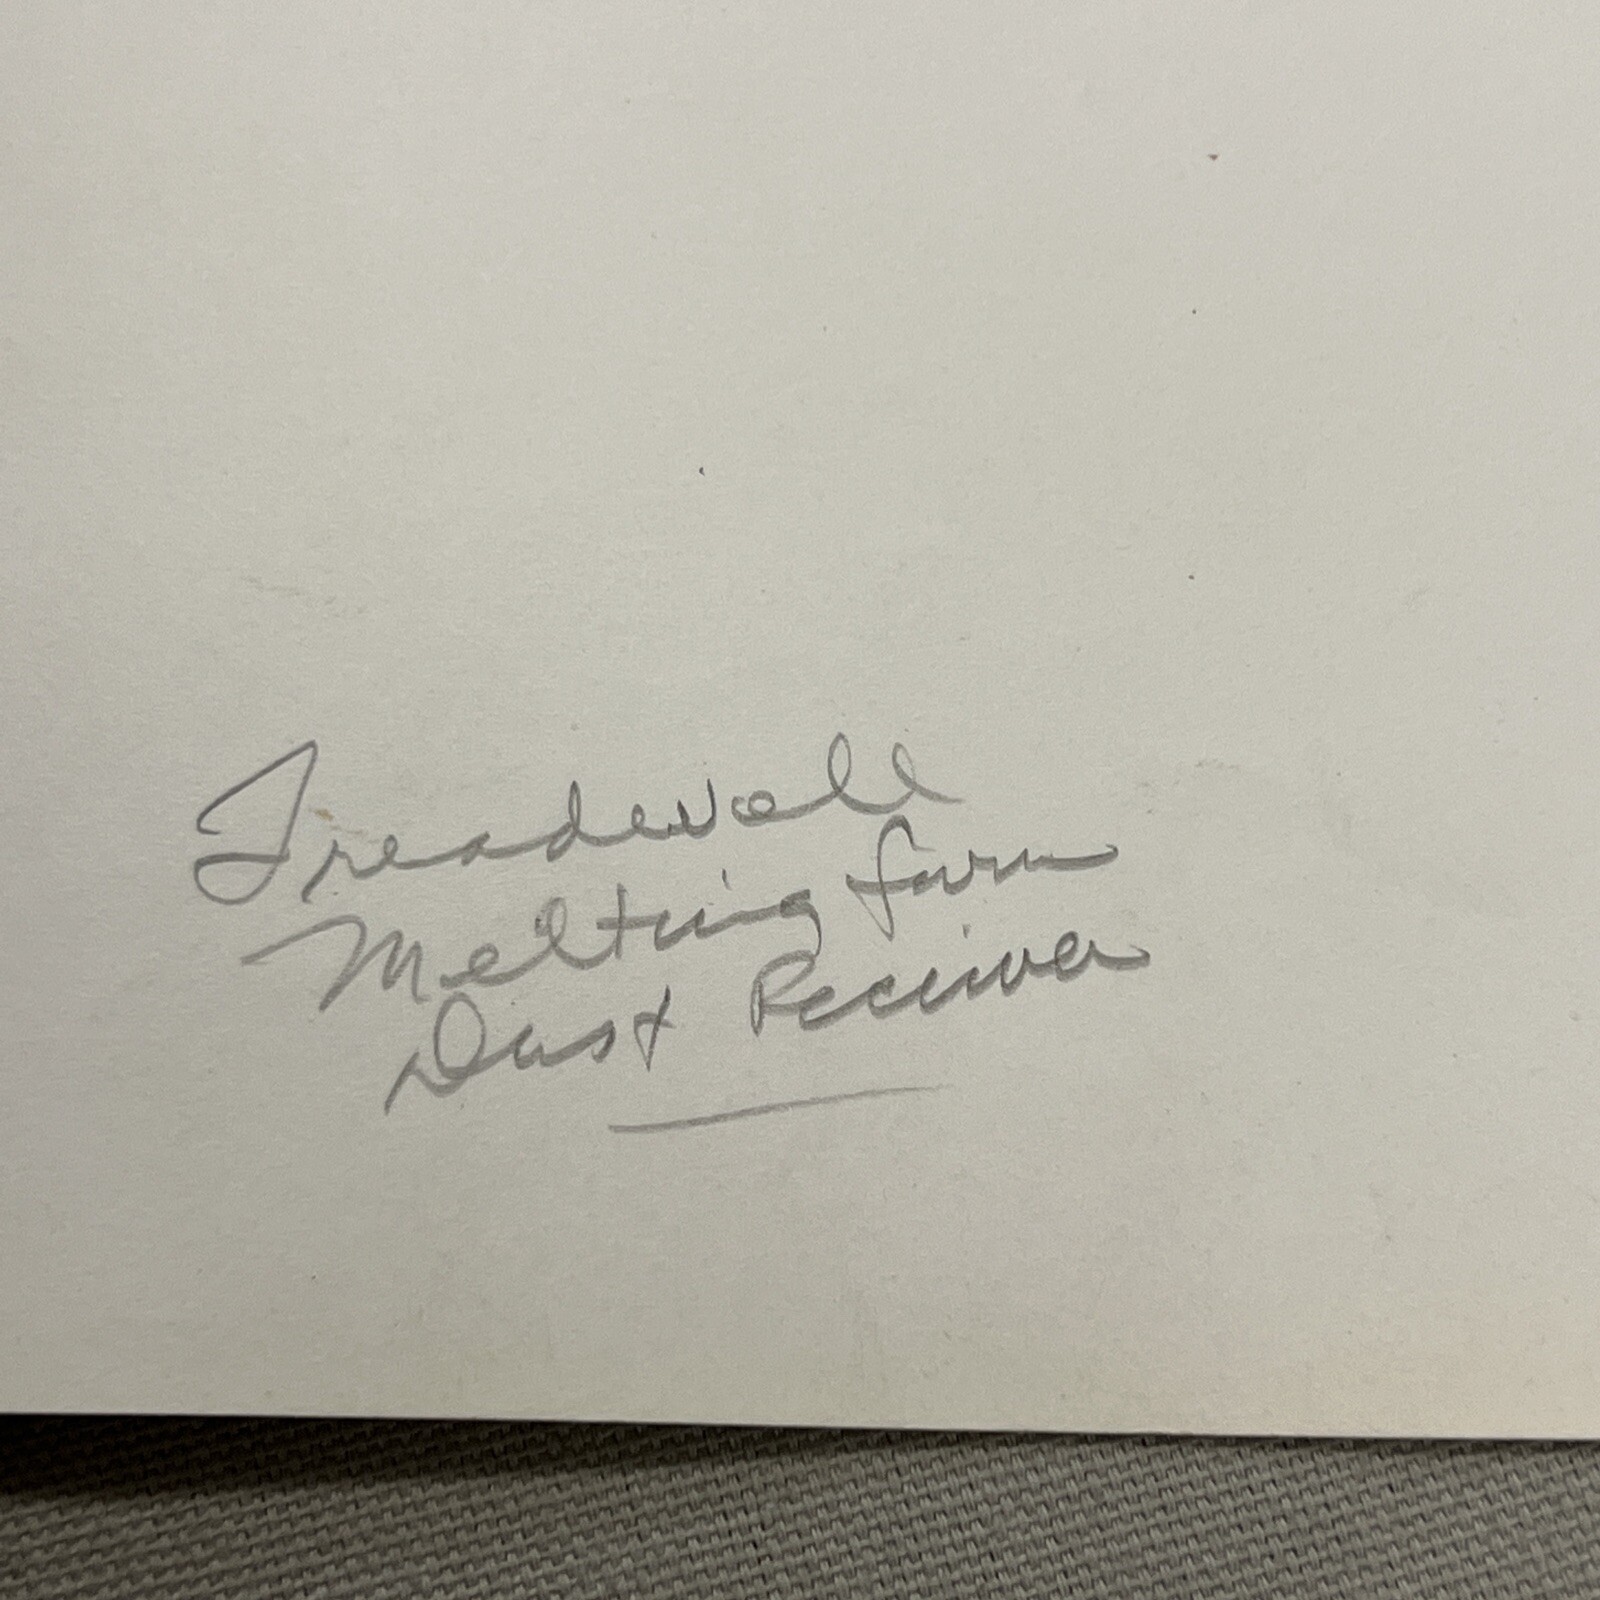 Treadwell
Melting furn
Dust Receiver